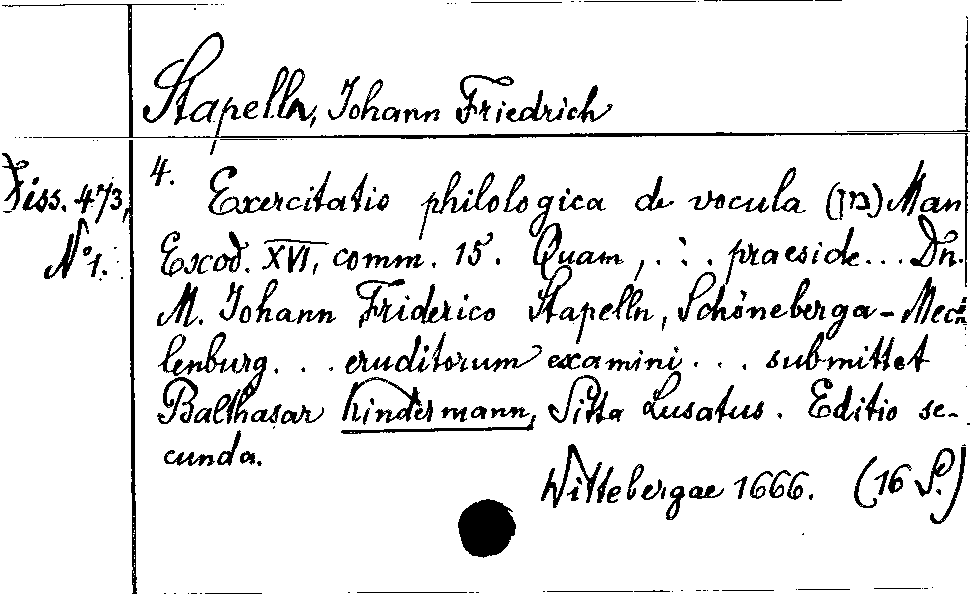 Stapelln, Johann Friedrich
Diss. 473,
No 1.
4. Exercitatio philologica de vocula (מן) Man
Exod. XVI, comm. 15. Quam, ... praeside... Dn.
M. Johann Friderico Stapelln, Schöneberga-Meck
lenburg... eruditorum examini... submittet
Balthasar Kindermann, Sitta Lusatus. Editio se-
cunda.
Wittebergae 1666. (16 S.)